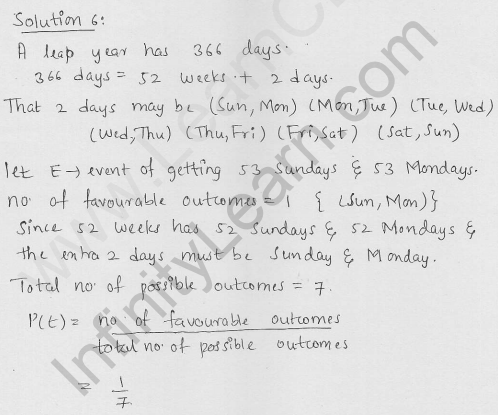 Solution 6:
A leap year has 366 days.
366 days = 52 weeks + 2 days.
That 2 days may be (Sun, Mon) (Mon, Tue) (Tue, Wed)
(Wed, Thu) (Thu, Fri) (Fri, Sat) (Sat, Sun)
let E → event of getting 53 Sundays & 53 Mondays.
no. of favourable outcomes = 1 { (Sun, Mon)}
Since 52 weeks has 52 Sundays & 52 Mondays &
the extra 2 days must be Sunday & Monday.
Total no. of possible outcomes = 7.
P(E) = no. of favourable outcomes
total no. of possible outcomes
= 1/7
InfinityLearn.com